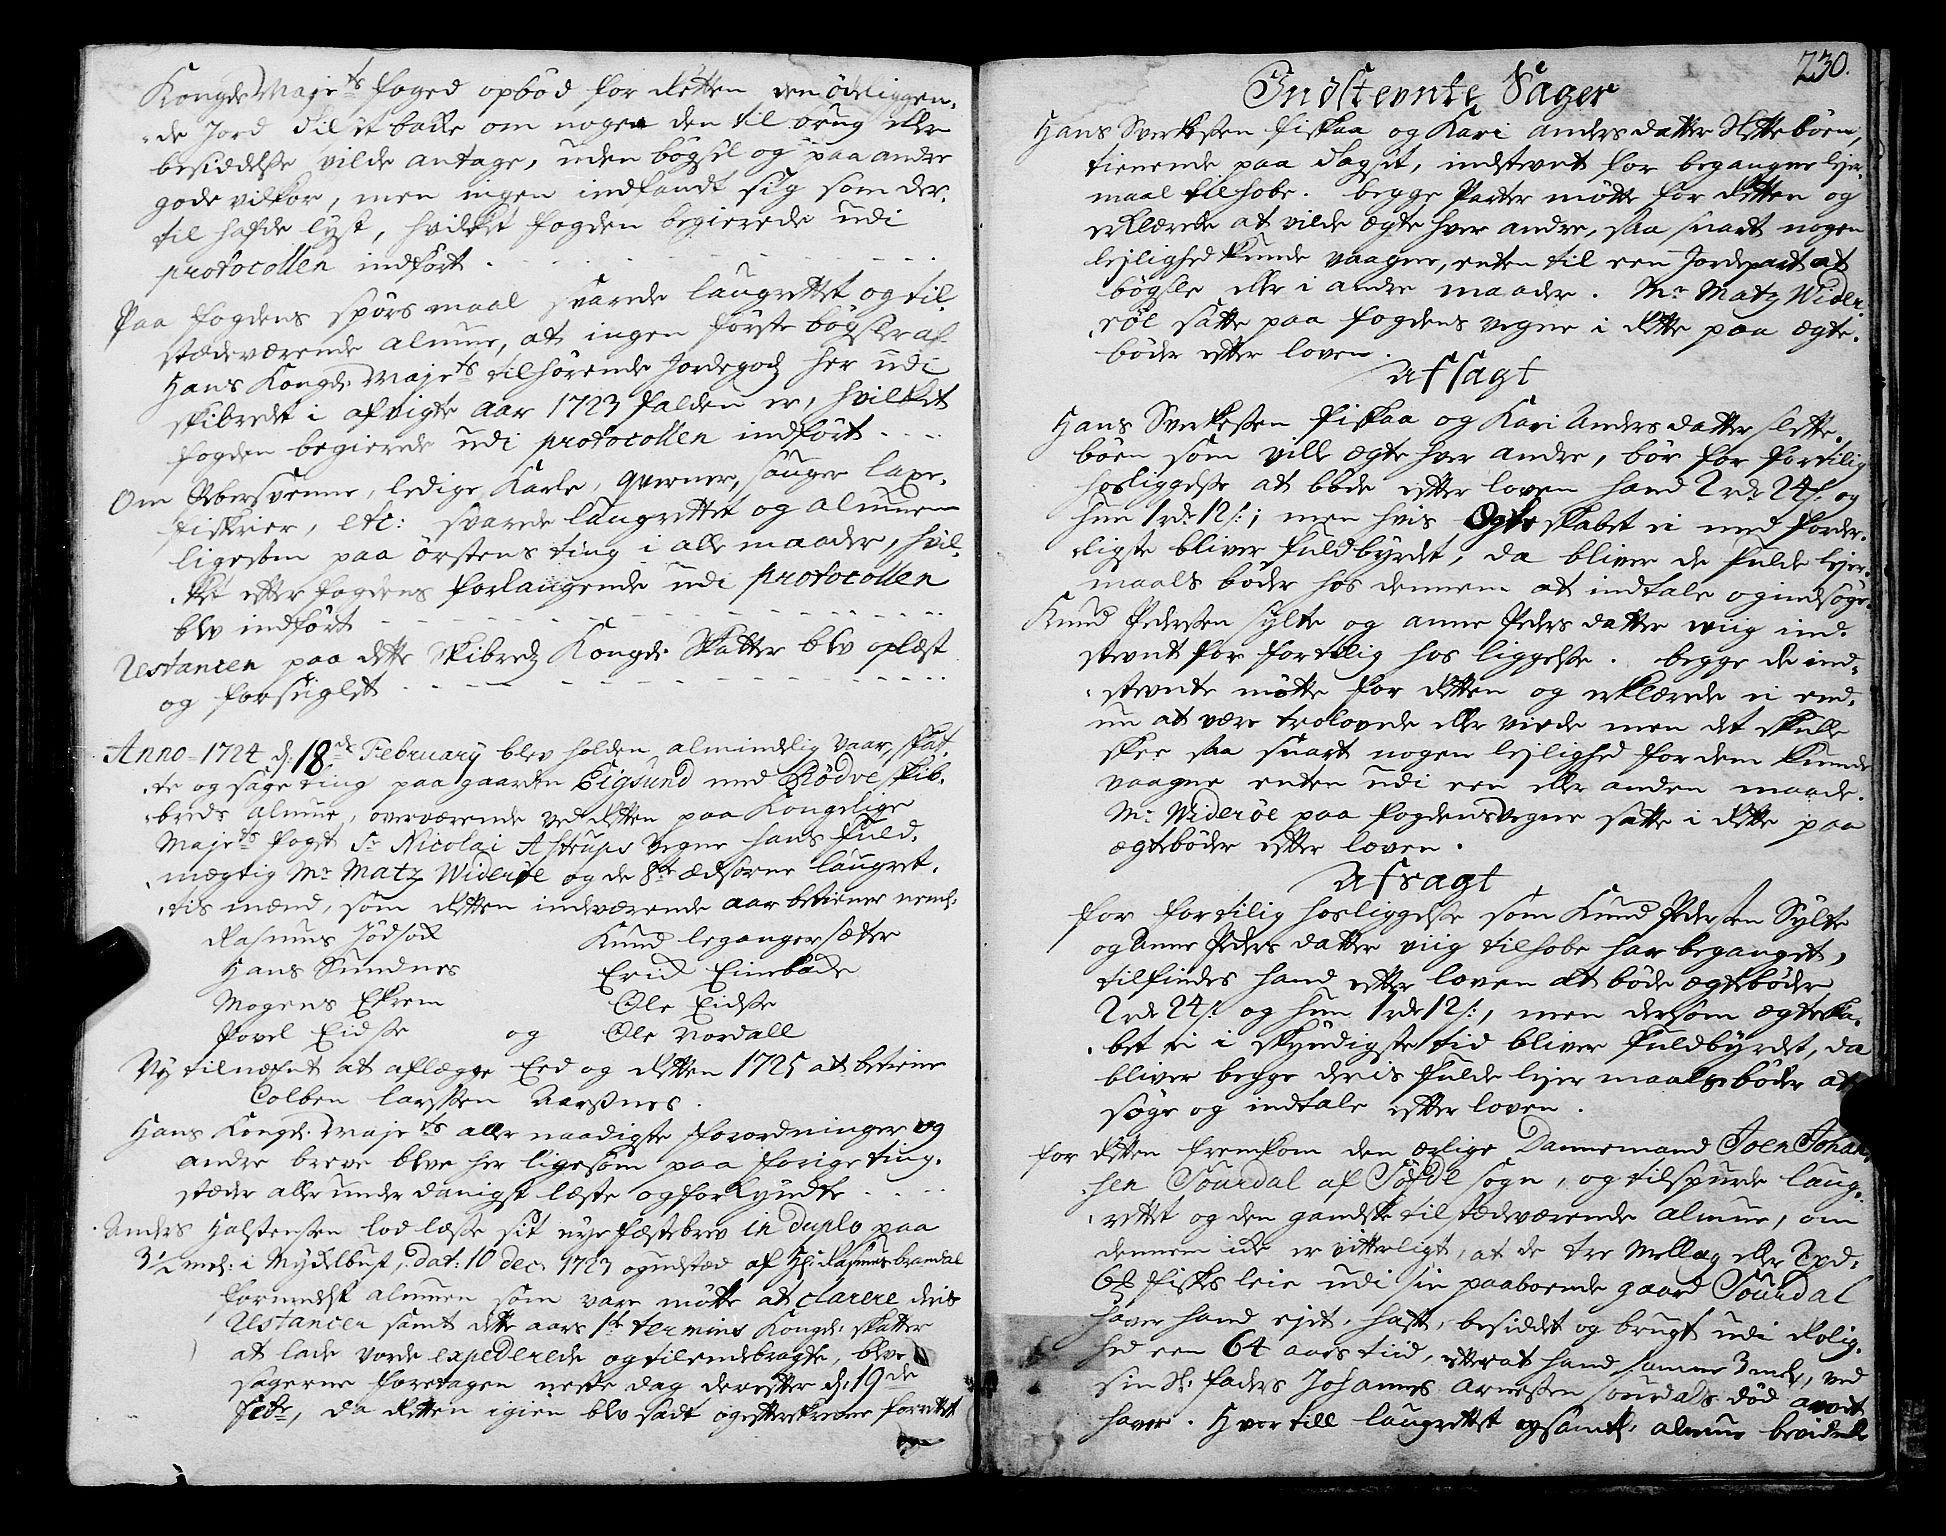 Kongde Majets foged opbød for Retten den ødeliggen-
de Jord Dilitbake om nogen den til brug eller
besiddelse vilde antage, uden bögsel og paa andre
gode vilkor, men ingen indfandt sig som der-
til hafde lyst, hvilket fogden begierede udi
protocollen indført
Paa fogdens spörsmaal svarede laugrettet og til-
stædeværende almue, at ingen förste bögsler af
Hans Kongde Majets tilhörende Jordegods her udi
skibredet i afvigte aar 1723 falden er, hvilket
fogden begierede udi protocollen indfört
Om Pebersvenne, ledige Karle, qverner, sauger laxe-
fiskrier, etc: svarede laugrettet og almuen
ligesom paa Örstens ting i alle maader, hvil-
ket etter fogdens forlangende udi protocollen
blev indfört
Restancen paa dette Skibreds Kongde Skatter blev oplæst
og forsiglet
Anno 1724 d: 18de February blev holden almindelig vaar, skat-
te og sage ting paa gaarden Eigsund med Rödve skib-
breds almue, overværende ved Retten paa Kongelige
Majets fogt Sr Nicolai Astrups vegne hans fuld-
mægtig Mr Matz Wideröe og de 8te ædsorne laugret-
tis mænd, som Retten indeværende aar betiener neml:
Rasmus Jödsok Knud legangersætter
Hans Sundnes Erick Eineböde
Mogens Ekrem Ole Eidsse
Povel Eidsse og Ole Nordall
Ny tilnæfnt at aflægge Eed og Retten 1725 at betiene
Colben larssen Aarsnes.
Hans Kongde Majets aller naadigste forordninger og
andre breve bleve her ligesom paa forige ting-
stæder allerunderdanigst læste og forkyndte
Anders Halstensen lod læse sit nye fæstebrev in duplo paa
3½ mel: i Mykelbust, dat: 10 Dec: 1723 og udstæd af Hr: Rasmus brandal
formedelst almuen som vare mötte at clarere deris
Restancen samt dette aars 1te termins Kongde skatter
at lade vorde expederede og tilendebragte, bleve
sagerne foretagen neste dag derefter d: 19de
Febr, da Retten igien blev sadt og efterskrevne forrettet
230.
Indstevnte Sager
Hans Sverkessen fiskaa og Kari andersdatter Sletteböen,
tienende paa Dagset, indstevnt for begangne leyer-
maal tilhobe. begge Parter mötte for Retten og
erklærede at vilde ægte hver andre, saa snart nogen
lejlighed kunde vaagne, enten til een Jordepart at
bögsle eller i andre maader. Mr Matz Wider-
röe satte paa fogdens vegne i Rette paa ægte-
böder etter loven.
Afsagt
Hans Sverkessen Fiskaa og Kari Andersdatter slette-
böen som ville ægte hver andre, bör for fortilig
hosliggelse at böde etter loven hand 2 rdr 24 s: og
hun 1 rdr 12 s:; men hvis Egteskabet ei med forder-
ligste bliver fuldbyrdet, da bliver de fulde lejer-
maals böder hos dennem at indtale og indsöge.
Knud Pedersen Sylte og anne Pedersdatter Wiig ind-
stevnt for fortilig hosliggelse. begge de ind-
stevnte mötte for Retten og erklærede ei end-
nu at være trolovede eller viede men det skulle
skee saa snart nogen lejlighed for dem kunde
vaagne enten udi een eller anden maade.
Mr Wideröe paa fogdens vegne satte i Rette paa
ægteböder etter loven.
Afsagt
for fortilig hosliggelse som Knud Pedersen Sylte
og Anne Pedersdatter Wiig tilhobe har beganget,
tilfindes hand etter loven at böde ægteböder
2 rdr 24 s: og hun 1 rdr 12 s:, men dersom ægteska-
bet ei i skyndigste tid bliver fuldbyrdet, da
bliver begge deris fulde lejermaals böder at
söge og indtale etter loven.
for Retten fremkom den ærlige Dannemand Joen Johan-
sen Sourdal af Söfde sogn, og tilspurde laug-
rettet og den gandske tilstædeværende almue, om
dennem icke er vitterligt, at de tre Mellag eller
fiskeleie udi sin paaboende gaard Sourdal
haver hand ejet, haft, besiddet og brugt udi Rolig-
hed een 64 aars tid, etterat hand samme 3 mel, ved
sin Sl: faders Johannes Arnesen sourdals död arvet
haver. Hvortill laugrettet og samtl: almue bevidnede